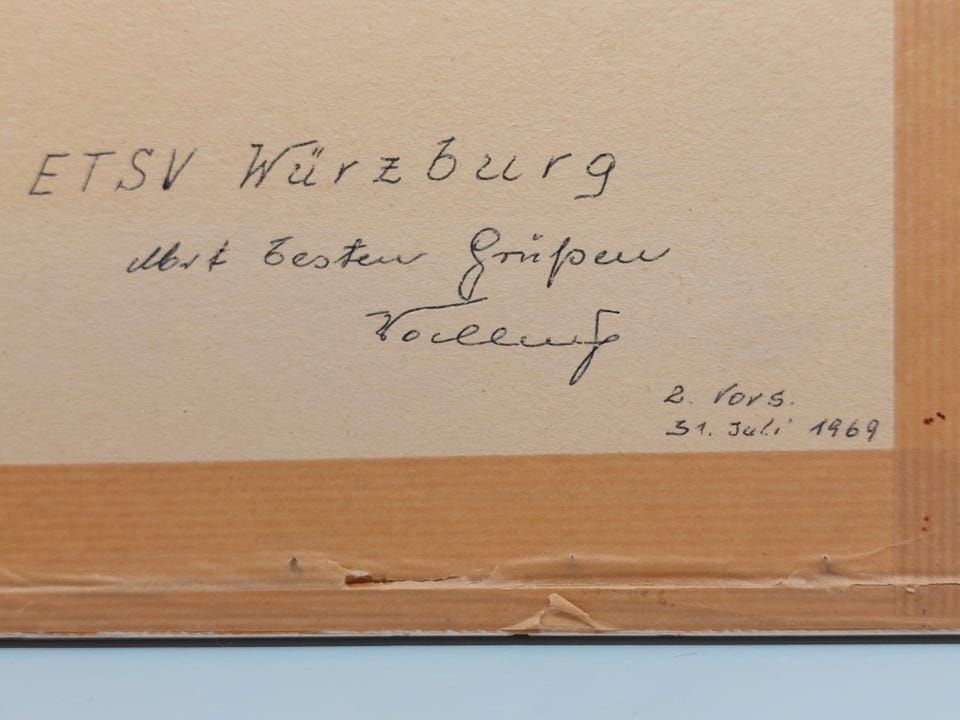 ETSV Würzburg
Mit besten Grüßen
2. Vors.
31. Juli 1969